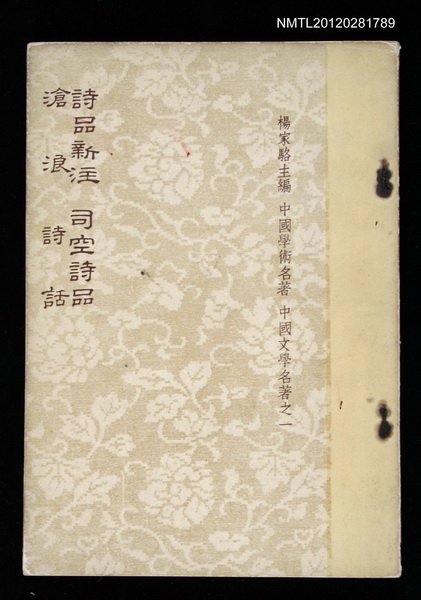 NMTL20120281789
楊家駱主編 中國學術名著 中國文學名著之一
詩品新注 司空詩品
滄浪詩話